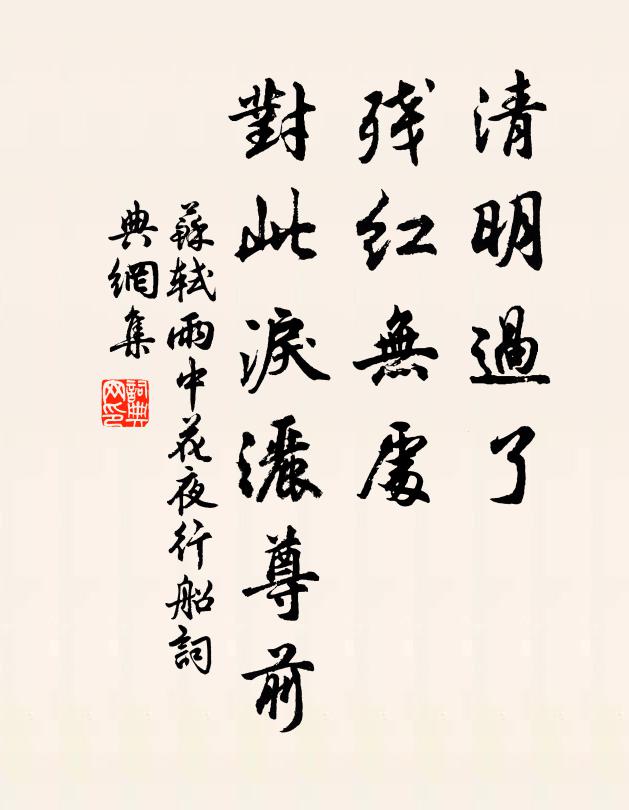 清明過了
残紅無處
對此淚灑尊前
蘇軾雨中花夜行船詞
典網集
詞典网印